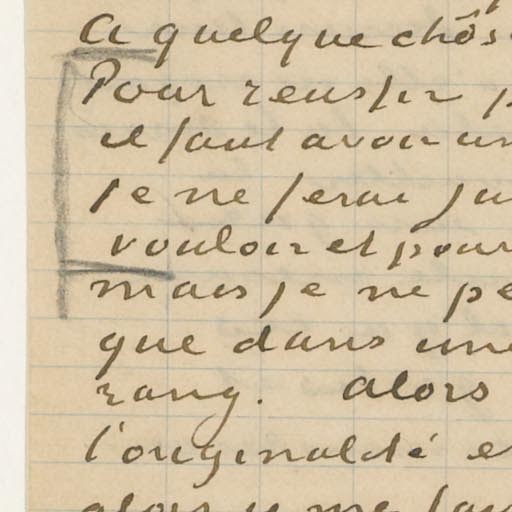 a quelque chos
Pour reussir p
il faut avoir un
je ne serai ju
vouloir et pour
mais je ne pe
que dans une
rang. alors
l'originalité e
alors il me fau